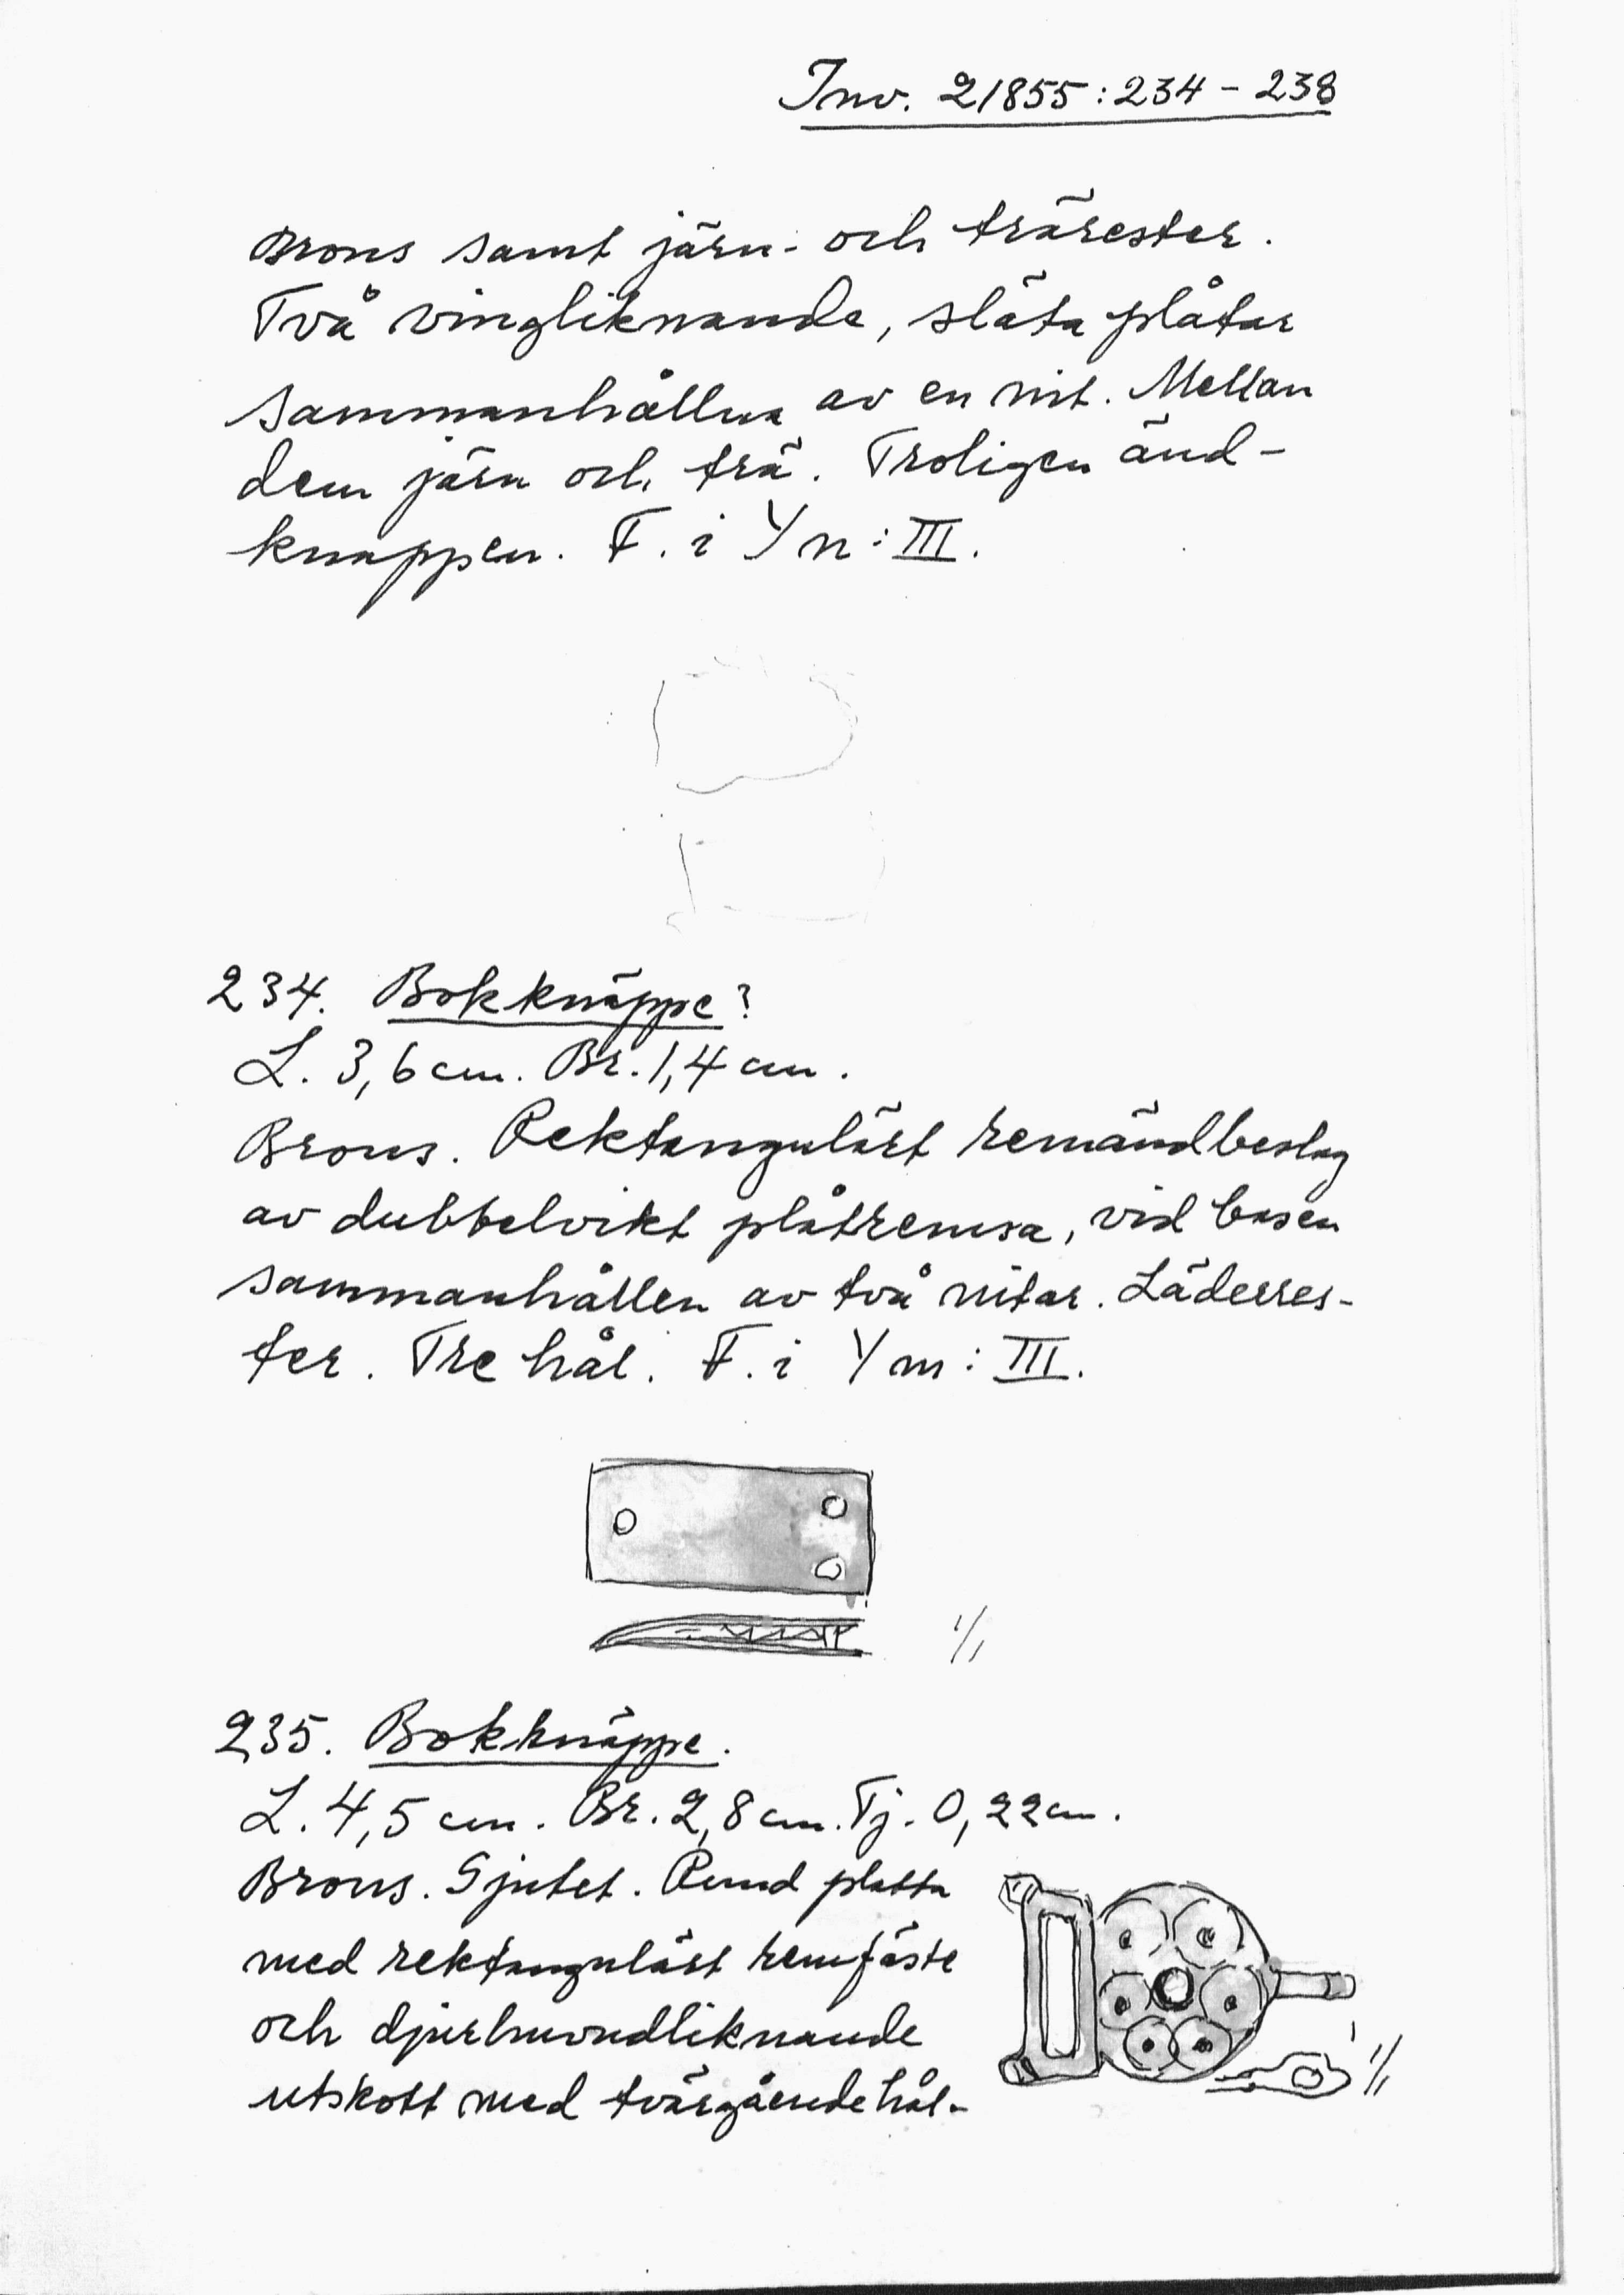 Inv. 21855:234-238
Brons samt järn- och trärester.
Två vingliknande, släta plåtar
sammanhållna av en nit. Mellan
dem järn och trä. Troligen änd-
knappen. F. i Yn:III.
234. Bokknäppe?
L. 3,6 cm. Br. 1,4 cm.
Brons. Rektangulärt remändbeslag
av dubbelvikt plåtremsa, vid basen
sammanhållen av två nitar. Läderres-
ter. Tre hål. F. i Ym:III.
1/1
235. Bokknäppe.
L. 4,5 cm. Br. 2,8 cm. Tj. 0,22 cm.
Brons. Gjutet. Rund platta
med rektangulärt remfäste
och djurhuvudliknande
utskott med tvärgående hål.
1/1